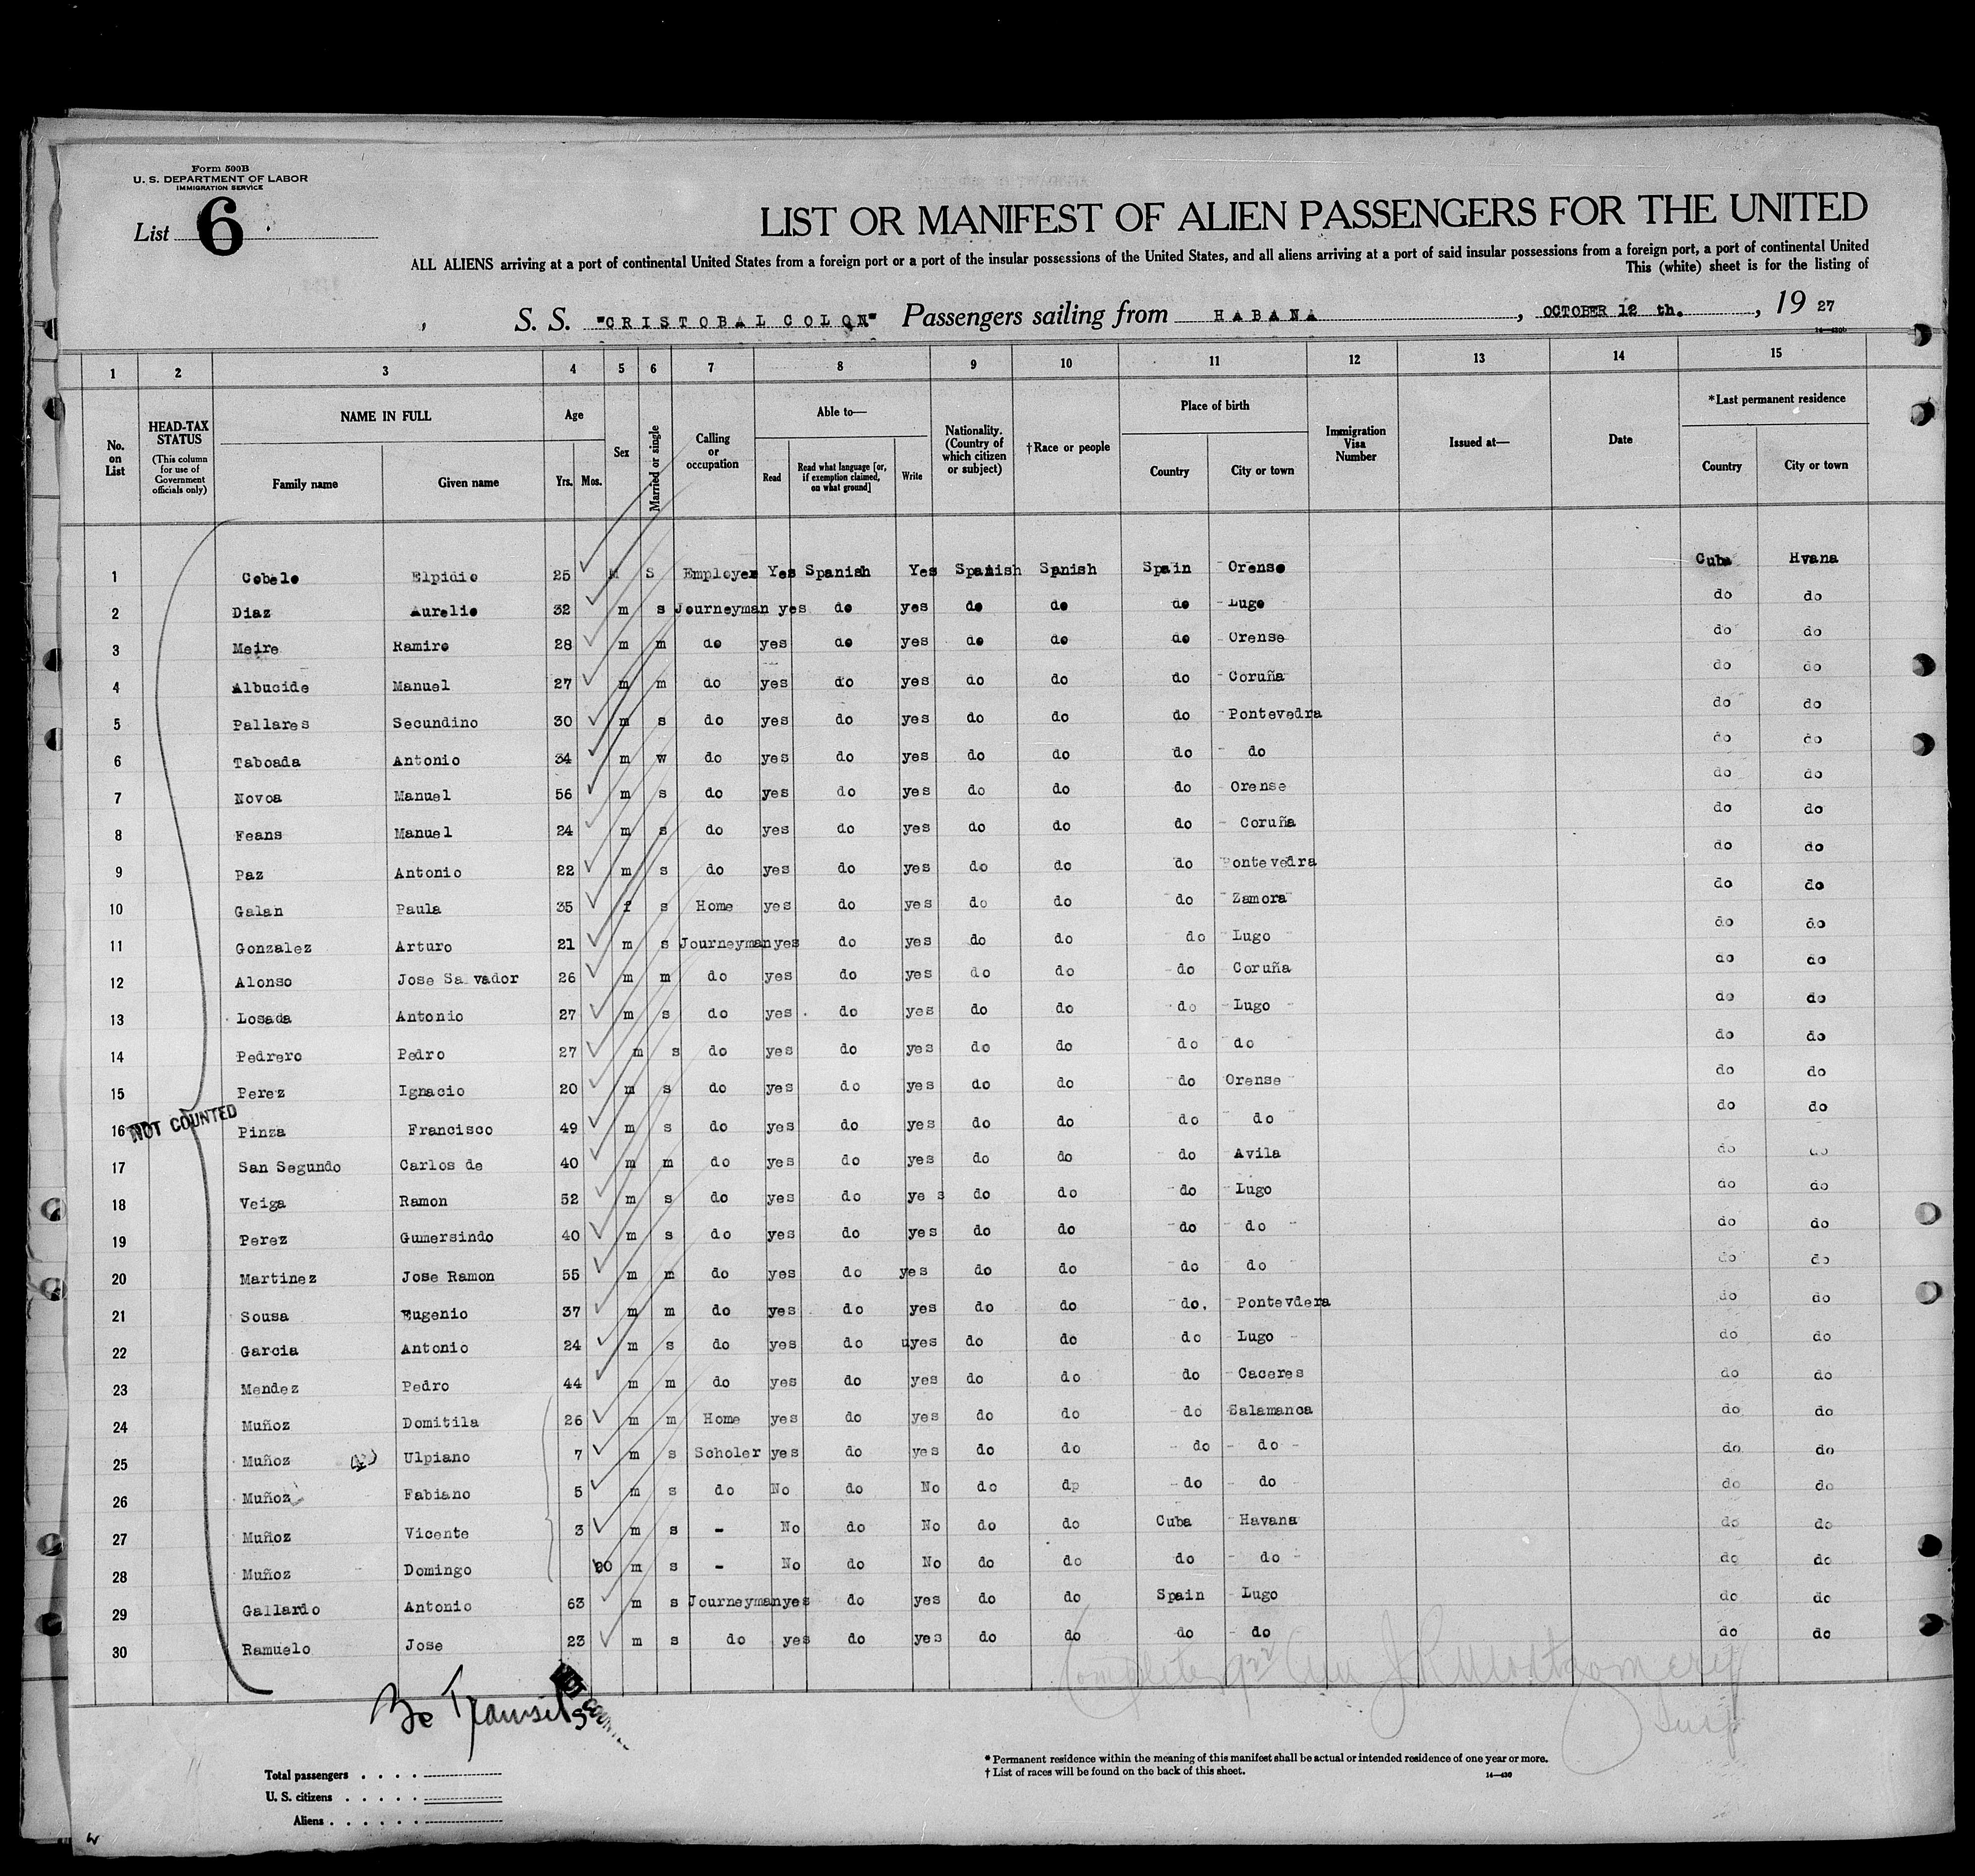 Form 500B
U. S. DEPARTMENT OF LABOR
IMMIGRATION SERVICE
List 6
LIST OR MANIFEST OF ALIEN PASSENGERS FOR THE UNITED
ALL ALIENS arriving at a port of continental United States from a foreign port or a port of the insular possessions of the United States, and all aliens arriving at a port of said insular possessions from a foreign port, a port of continental United
This (white) sheet is for the listing of
S. S. "CRISTOBAL COLON" Passengers sailing from HABANA, OCTOBER 12 th., 19 27
1 2 3 4 5 6 7 8 9 10 11 12 13 14 15
No. on List
HEAD-TAX STATUS (This column for use of Government officials only)
NAME IN FULL
Family name Given name
Age
Yrs. Mos.
Sex
Married or single
Calling or occupation
Able to—
Read Read what language [or, if exemption claimed, on what ground] Write
Nationality. (Country of which citizen or subject)
†Race or people
Place of birth
Country City or town
Immigration Visa Number
Issued at—
Date
*Last permanent residence
Country City or town
1 Cobelo Elpidio 25 M S Employer Yes Spanish Yes Spanish Spnish Spain Orense Cuba Hvana
2 Diaz Aurelio 32 m s Journeyman yes do yes do do do Lugo do do
3 Meire Ramiro 28 m m do yes do yes do do do Orense do do
4 Albucide Manuel 27 m m do yes do yes do do do Coruña do do
5 Pallares Secundino 30 m s do yes do yes do do do Pontevedra do do
6 Taboada Antonio 34 m w do yes do yes do do do do do do
7 Novoa Manuel 56 m s do yes do yes do do do Orense do do
8 Feans Manuel 24 m s do yes do yes do do do Coruña do do
9 Paz Antonio 22 m s do yes do yes do do do Pontevedra do do
10 Galan Paula 35 f s Home yes do yes do do do Zamora do do
11 Gonzalez Arturo 21 m s Journeyman yes do yes do do do Lugo do do
12 Alonso Jose Salvador 26 m m do yes do yes do do do Coruña do do
13 Losada Antonio 27 m s do yes do yes do do do Lugo do do
14 Pedrero Pedro 27 m s do yes do yes do do do do do do
15 Perez Ignacio 20 m s do yes do yes do do do Orense do do
16 Pinza Francisco 49 m s do yes do yes do do do do do do
NOT COUNTED
17 San Segundo Carlos de 40 m m do yes do yes do do do Avila do do
18 Veiga Ramon 52 m s do yes do ye s do do do Lugo do do
19 Perez Gumersindo 40 m s do yes do yes do do do do do do
20 Martinez Jose Ramon 55 m m do yes do yes do do do do do do
21 Sousa Eugenio 37 m m do yes do yes do do do. Pontevdera do do
22 Garcia Antonio 24 m s do yes do uyes do do do Lugo do do
23 Mendez Pedro 44 m m do yes do yes do do do Caceres do do
24 Muñoz Domitila 26 m m Home yes do yes do do do Salamanca do do
25 Muñoz Ulpiano 7 m s Scholer yes do yes do do do do do do
26 Muñoz Fabiano 5 m s do No do No do dp do do do do
27 Muñoz Vicente 3 m s - No do No do do Cuba Havana do do
28 Muñoz Domingo m s - No do No do do do do do do
29 Gallardo Antonio 63 m s Journeyman yes do yes do do Spain Lugo do do
30 Ramuelo Jose 23 m s do yes do yes do do do do do do
Transit
Montgomery
Total passengers
U. S. citizens
Aliens
* Permanent residence within the meaning of this manifest shall be actual or intended residence of one year or more.
† List of races will be found on the back of this sheet.
14—430